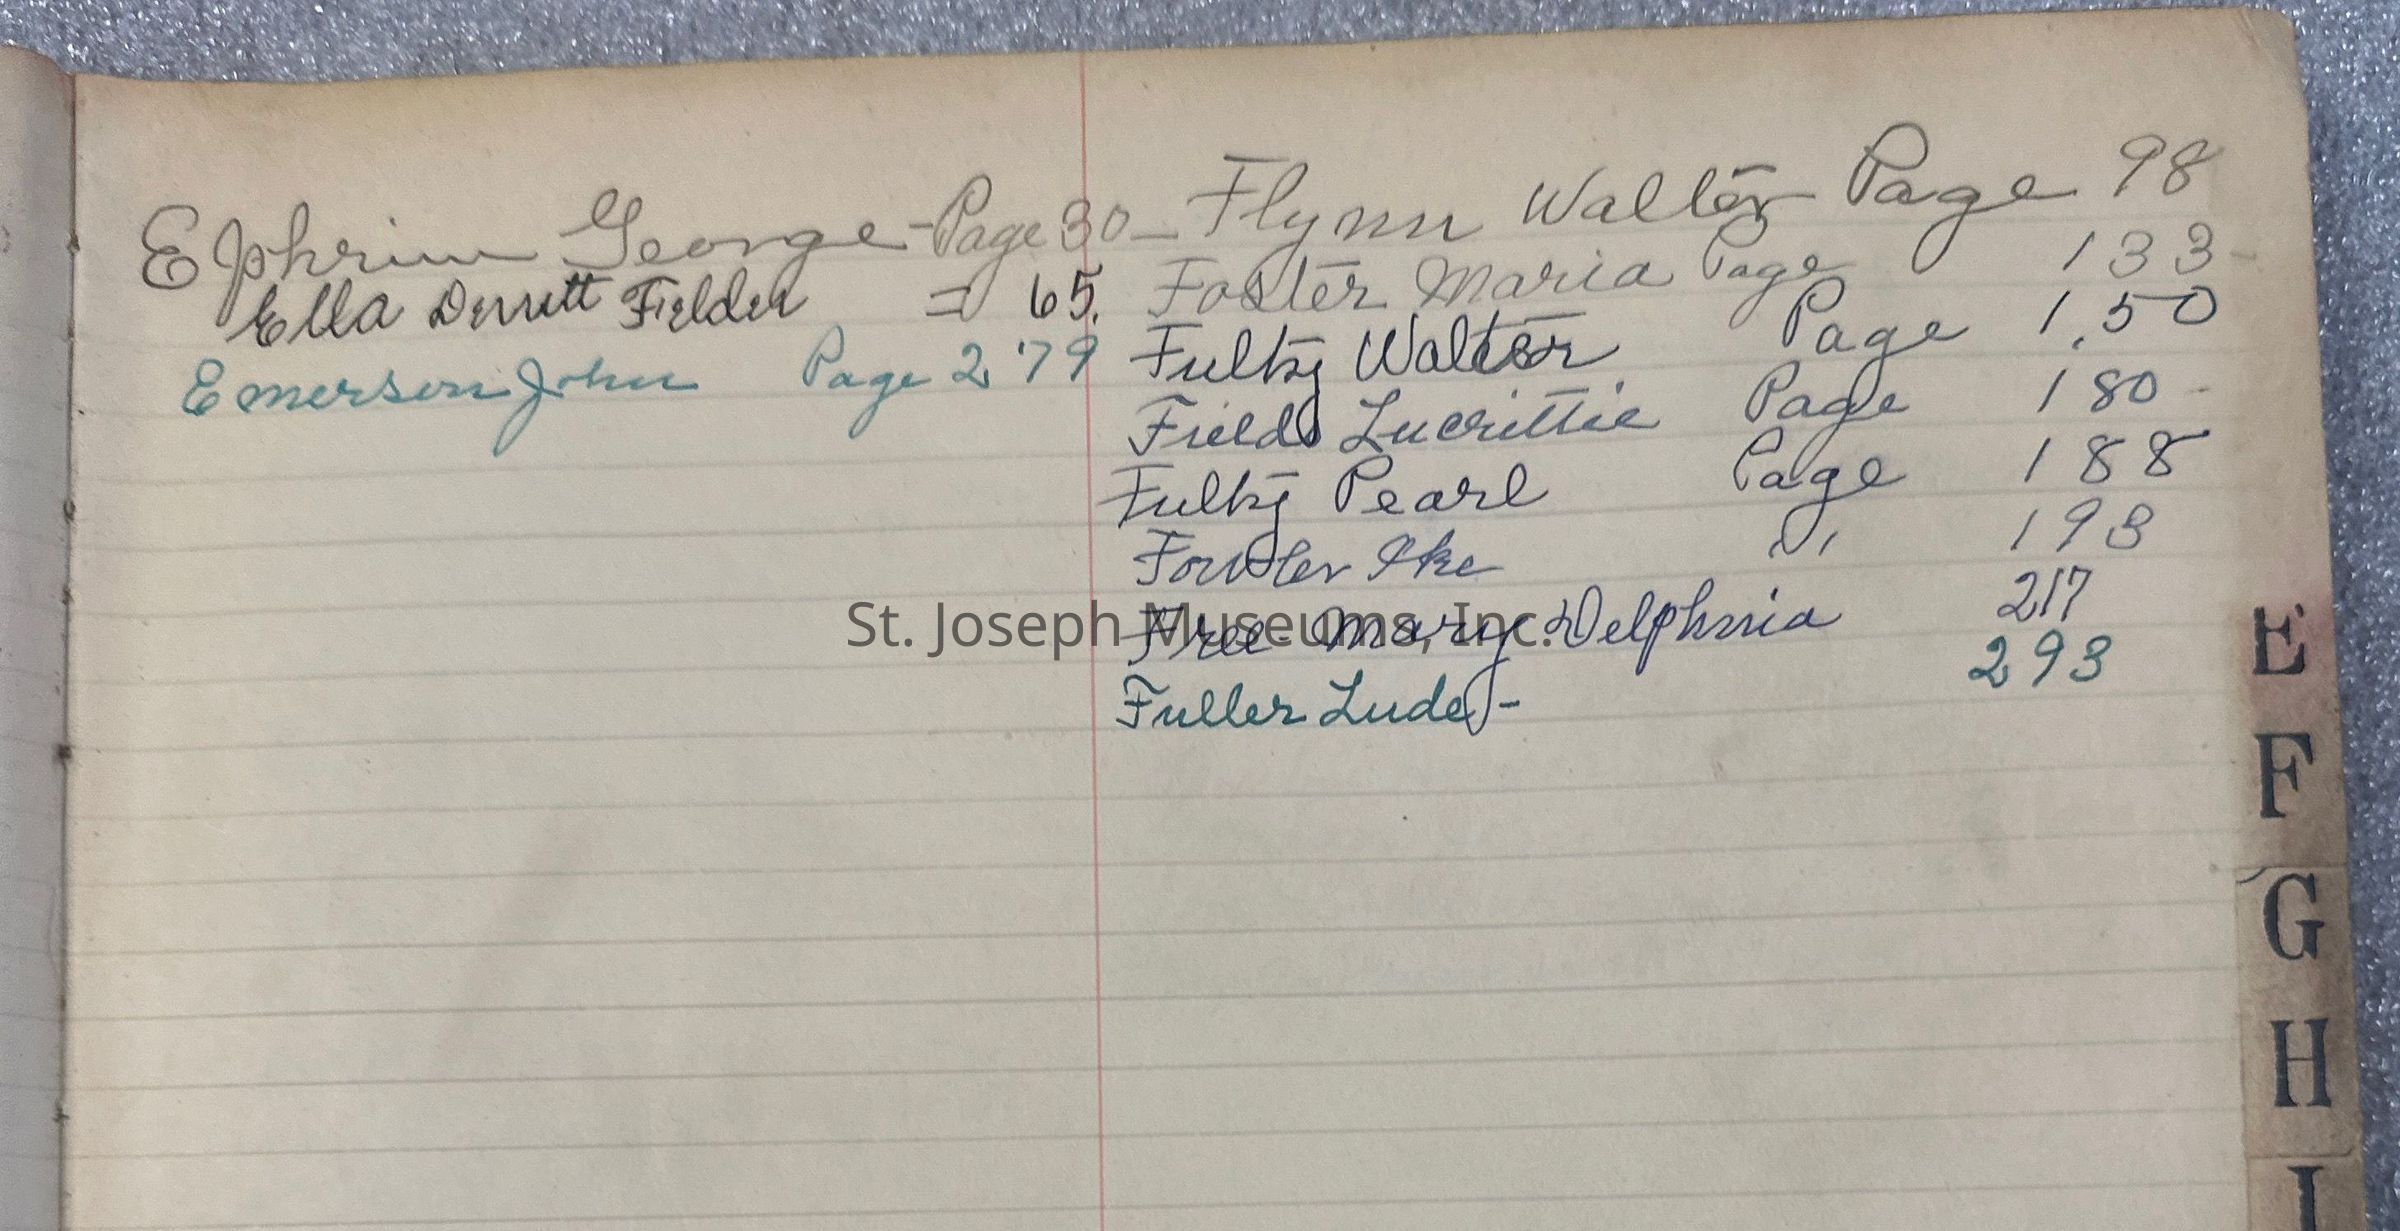 Ephrim George - Page 30 -
Ella Derritt Fielder = 65.
Emerson John Page 279
Flynn Walter Page 98
Foster Maria Page 133-
Fulky Walter Page 1.50
Fields Lucrittie Page 180-
Fulky Pearl Page 188
Fowler Ike " 193
Free Mary Delphnia 217
Fuller Lude - 293
St. Joseph Museums, Inc.
E
F
G
H
I